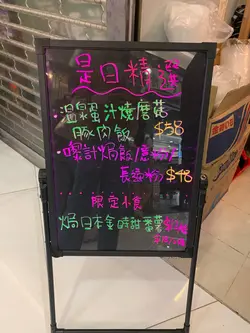 是日精選
溫泉蛋汁燒蘑菇
豚肉飯 $58
焗飯/意粉/
長通粉 $48
限定小食
焗日本金時甜番薯